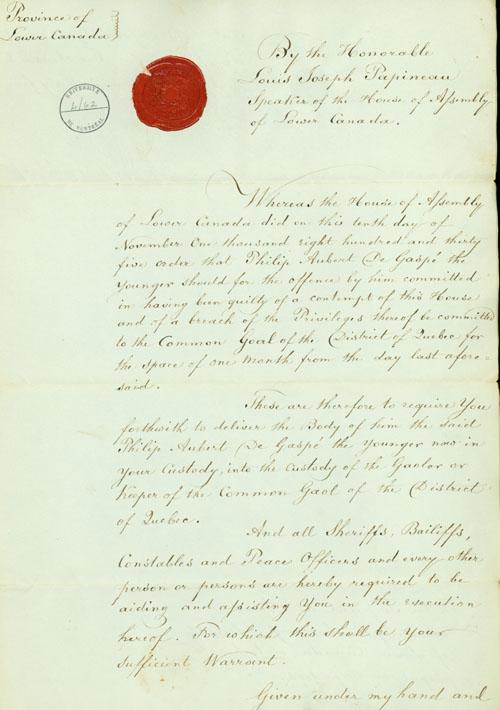 Province of
Lower Canada
UNIVERSITÉ
4/62
DE MONTRÉAL
By the Honorable
Louis Joseph Papineau
Speaker of the House of Assembly
of Lower Canada.
Whereas the House of Assembly
of Lower Canada did on this tenth day of
November One thousand eight hundred and thirty
five order that Philip Aubert De Gaspé the
younger should for the offence by him committed
in having been guilty of a contempt of this House
and of a breach of the Privileges thereof be committed
to the Common Goal of the District of Quebec for
the space of one Month from the day last afore-
said.
These are therefore to require You
forthwith to deliver the Body of him the said
Philip Aubert De Gaspé the younger now in
Your Custody, into the Custody of the Gaoler or
Keeper of the Common Gaol of the District
of Quebec.
And all Sheriffs, Bailiffs,
Constables and Peace Officers and every other
person or persons are hereby required to be
aiding and assisting You in the execution
hereof. For which this shall be Your
sufficient Warrant.
Given under my hand and